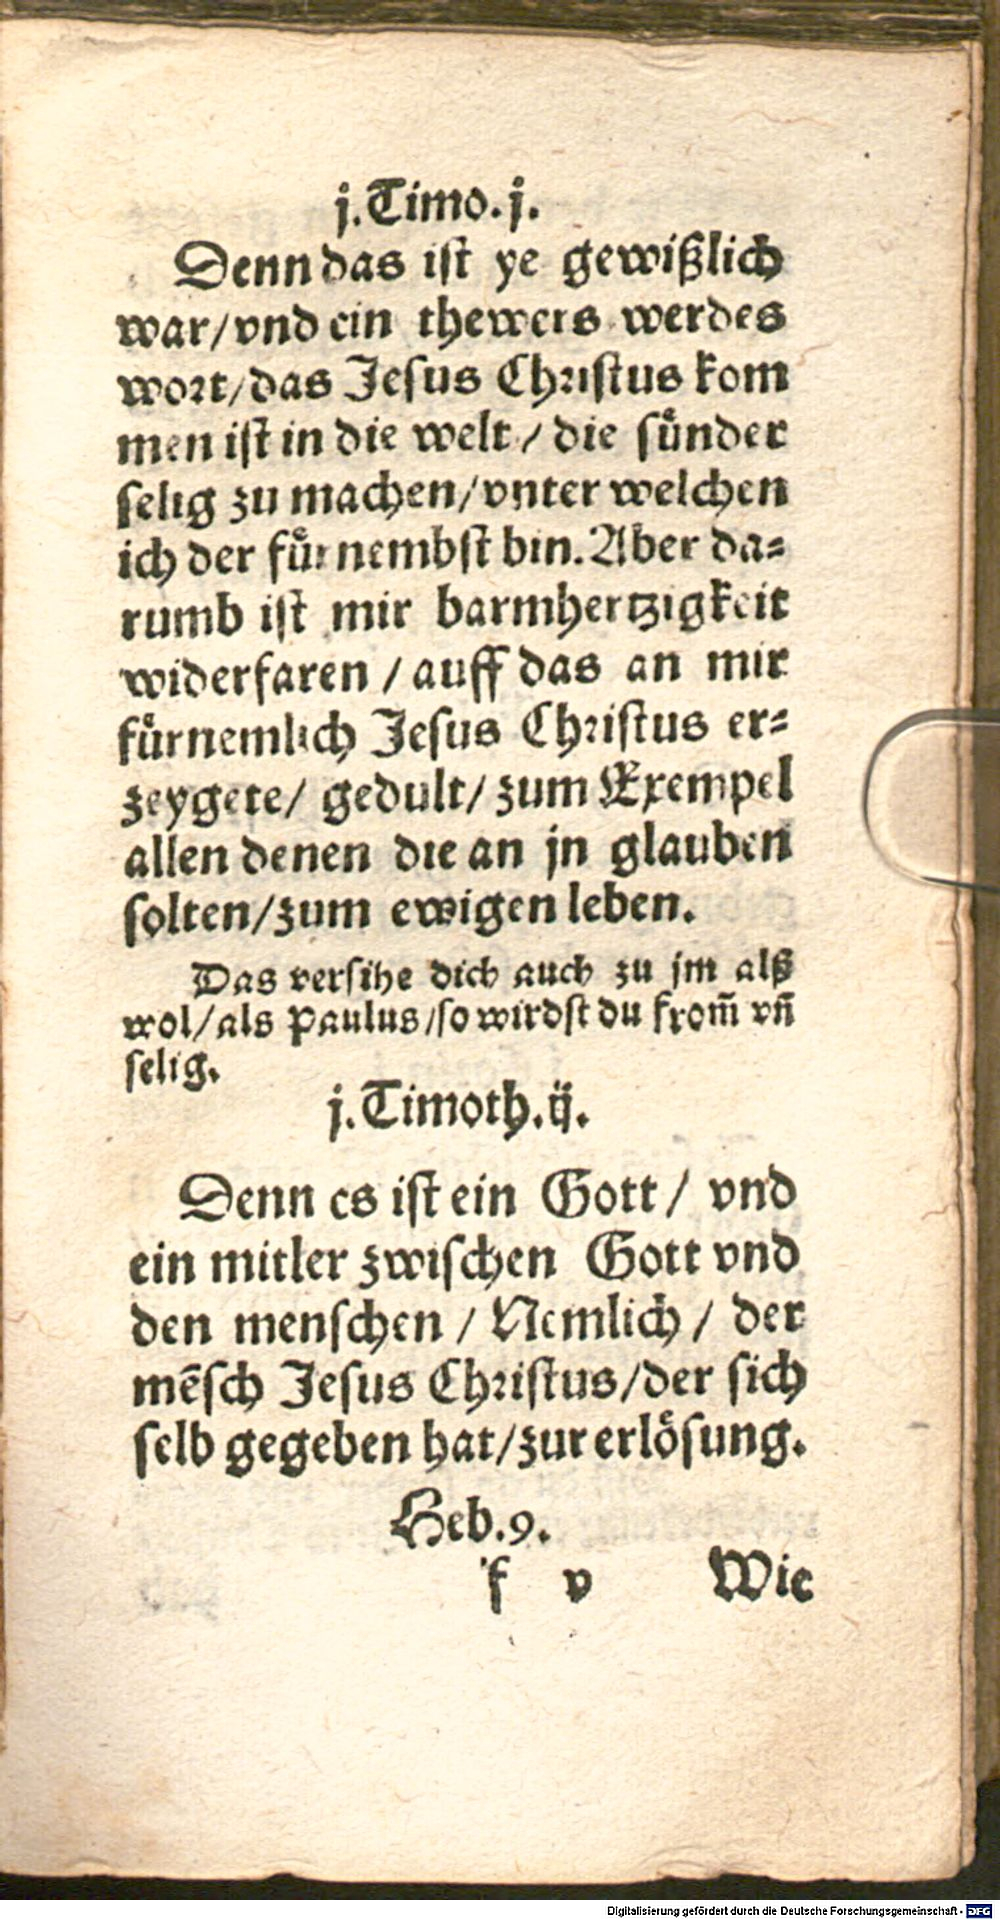 j.Timo.j.
Denn das ist ye gewißlich
war/vnd ein thewers werdes
wort/das Jesus Christus kom
men ist in die welt/die sůnder
selig zu machen/vnter welchen
ich der fůrnembst bin.Aber da⸗
rumb ist mir barmhertzigkeit
widerfaren/auff das an mir
fůrnemlich Jesus Christus er⸗
zeygete/gedult/zum Exempel
allen denen die an jn glauben
solten/zum ewigen leben.
Das versihe dich auch zu jm alß
wol/als Paulus/so wirdst du from̃ vñ
selig.
j.Timoth.ij.
Denn es ist ein Gott/vnd
ein mitler zwischen Gott vnd
den menschen/Nemlich/der
mẽsch Jesus Christus/der sich
selb gegeben hat/zur erlösung.
Heb.9.
f v Wie
Digitalisierung gefördert durch die Deutsche Forschungsgemeinschaft - DFG